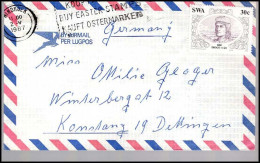 1987
BUY EASTER STAMPS
KAUFT OSTERMARKEN
Germany
SWA 30c
BY AIRMAIL
PER LUGPOS
Miss Ottilie Gloger
Winterbergst 12
Konstanz 19 Dettingen